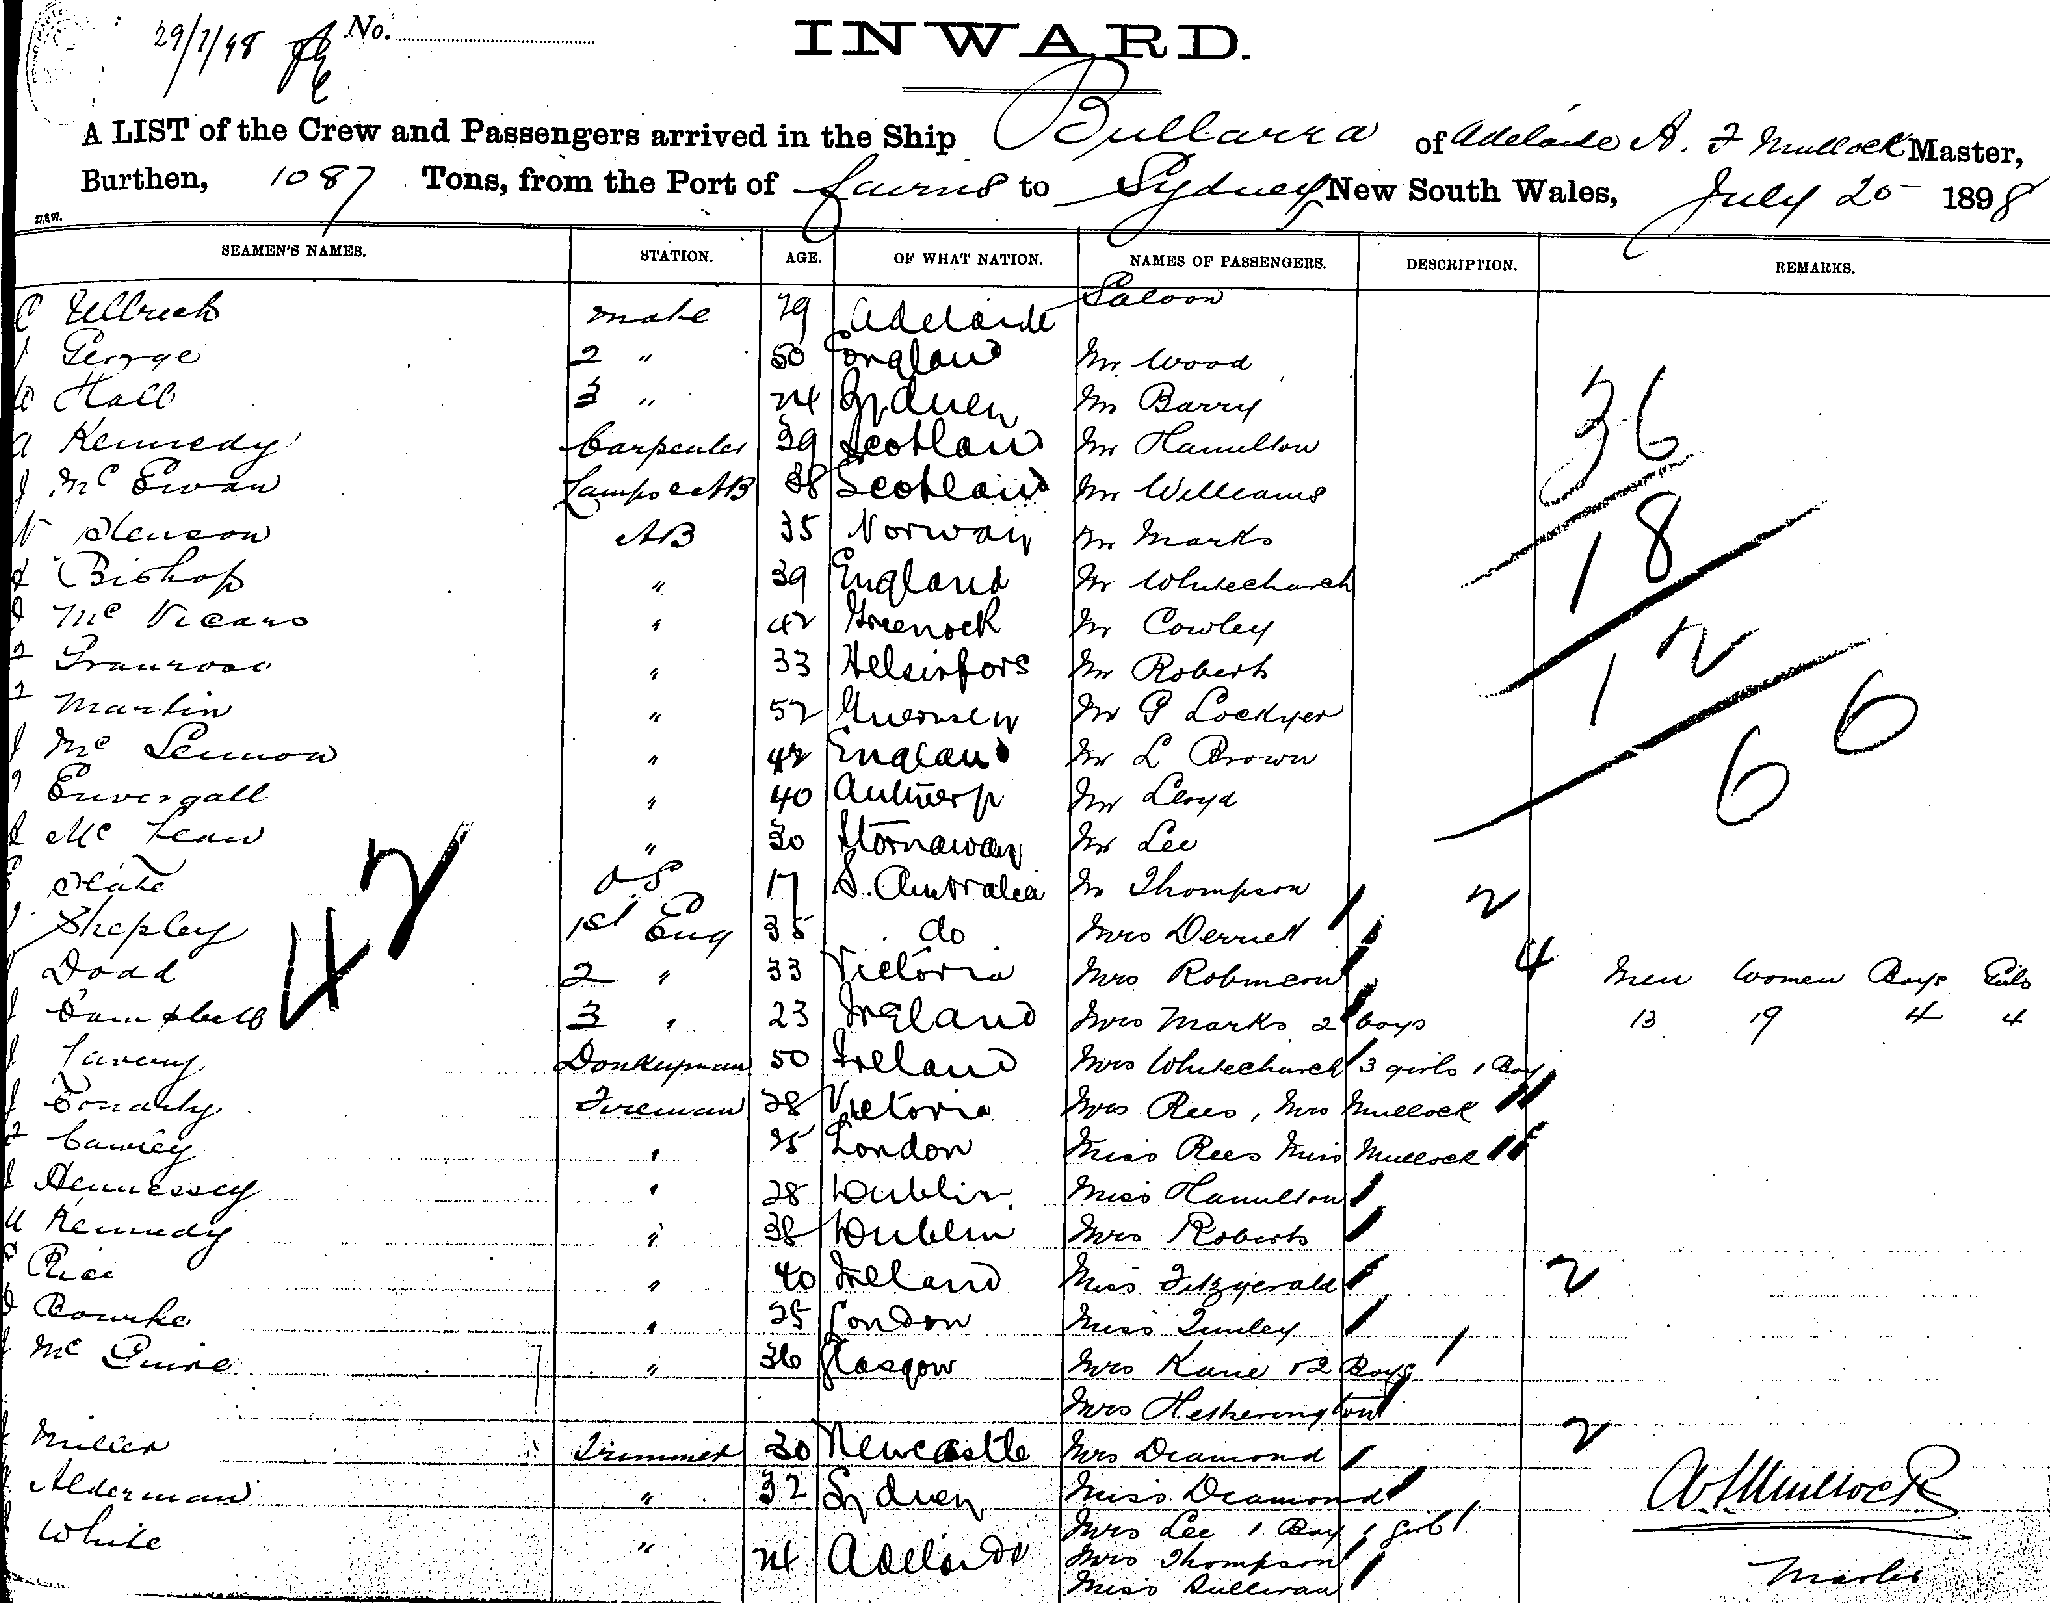 29/7/98 No.
INWARD.
A LIST of the Crew and Passengers arrived in the Ship Bullarra of Adelaide A. F Mullock Master,
Burthen, 1087 Tons, from the Port of Cairns to Sydney New South Wales, July 25 1898
SEAMEN'S NAMES. STATION. AGE. OF WHAT NATION. NAMES OF PASSENGERS. DESCRIPTION. REMARKS.
Saloon
C Ullrich mate 29 Adelaide
J George 2 " 50 England Mr Wood
Hall 3 " 24 Sydney Mr Barry
A Kennedy Carpenter 39 Scotland Mr Hamilton
J McEwan Lamps & AB 38 Scotland Mr Williams
36
Stenson AB 35 Norway Mr Marks
18
Bishop " 39 England Mr Whitechurch
McVicars " 42 Greenock Mr Cowley
12
Granrose " 33 Helsinfors Mr Roberts
Martin " 52 Guernsey Mr G Lockyer
66
J McLennon " 42 England Mr L Brown
" 40 Antwerp Mr Lloyd
McLean " 30 Stornaway Mr Lee
42
Slate OS 17 S. Australia Mr Thompson 2
J Shepley 1st Eng 35 do Mrs Derrick
Dodd 2 " 33 Victoria Mrs Robinson 4 Men Women Boys Girls
J Campbell 3 " 23 Ireland Mrs Marks 2 boys 13 19 4 4
J Lavery Donkeyman 50 Ireland Mrs Whitechurch 3 girls 1 Boy
J Fireman 28 Victoria Mrs Rees, Mrs Mullock
Cawley " 25 London Miss Rees Miss Mullock
J Hennessey " 28 Dublin Miss Hamilton
Kennedy " 38 Dublin Mrs Roberts
Rice " 40 Ireland Miss Fitzgerald 2
Bourke " 25 London Miss
J McGuire " 36 Glasgow Mrs Kane & 2 Boys
Mrs Hetherington
Miller Trimmer 30 Newcastle Mrs Diamond 2
Alderman " 32 Sydney Miss Diamond A F Mullock
Mrs Lee 1 Boy 1 girl
White " 24 Adelaide Mrs Thompson
Miss Sullivan Master